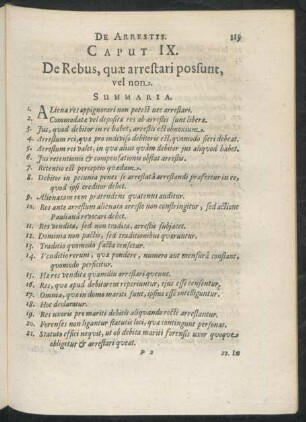 DE ARRESTIS. 115
CAPUT IX.
De Rebus, quæ arrestari possunt,
vel non.
SUMMARIA.
1. ALiena res appignorari non potest nec arrestari.
2. Commodatæ vel depositæ res ab arrestis sunt liberæ.
3. Jus, quod debitor in re habet, arrestis est obnoxium.
4. Arrestum rei, qua pro mulcta debitoris est, quomodo fieri debeat.
5. Arrestum rei valet, in qua alias quàm debitor jus aliquod habet.
6. Jus retentionis & compensationis obstat arrestis.
7. Retentio est perceptio quædam.
8. Debitor in pecunia penes se arrestata arrestandi præfertur in eo, quod ipsi creditor debet.
9. Alienatam rem prætendens quatenus auditur.
10. Res ante arrestum alienata arresto non constringitur, sed actione Pauliana revocari debet.
11. Res vendita, sed non tradita arresto, subjacet.
12. Dominia non pactis, sed traditionibus quæruntur.
13. Traditio quomodo facta censetur.
14. Venditio rerum, quæ pondere, numero aut mensura constant, quomodo perficitur.
15. Hæres vendita quamdiu arrestari queunt.
16. Res, qua apud debitorem reperiuntur, ejus esse censentur.
17. Omnia, quæ in domo mariti sunt, ipsius esse intelliguntur.
18. Hoc declaratur.
19. Res uxoris pro mariti debitis aliquando rectè arrestantur.
20. Forenses non ligantur statutis loci, qua contingunt personas.
21. Statuto effici nequit, ut ob debita mariti forensis uxor quoque obligetur & arrestari queat.
P 2 22. In